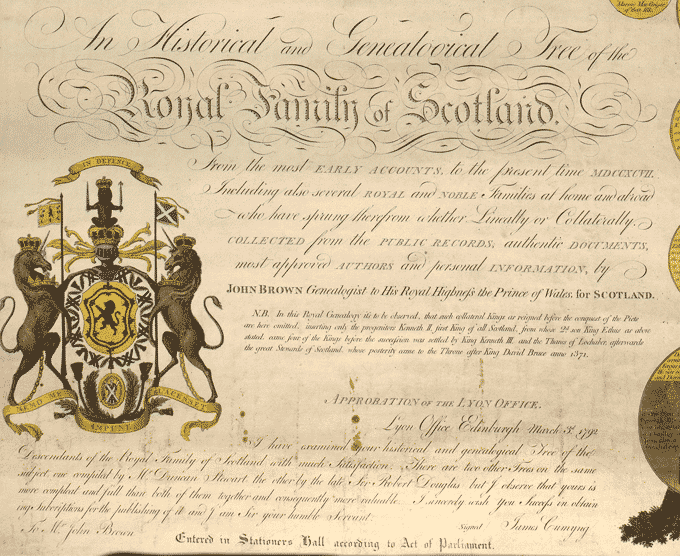 An Historical and Genealogical Tree of the
Royal Family of Scotland.
From the most EARLY ACCOUNTS, to the present time MDCCXCVII.
Including also several ROYAL and NOBLE Families at home and abroad
who have sprung therefrom whether Lineally or Collaterally,
COLLECTED from the PUBLIC RECORDS, authentic DOCUMENTS,
most approved AUTHORS and personal INFORMATION, by
JOHN BROWN Genealogist to His Royal Highness the Prince of Wales, for SCOTLAND.
N.B. In this Royal Genealogy its to be observed, that such collateral Kings as reigned before the conquest of the Picts
are here omitted, inserting only the progenitors Kenneth II. first King of all Scotland, from whose 2d. son King Ethus as above
stated, came four of the Kings before the succession was settled by King Kenneth III. and the Thanes of Lochaber, afterwards
the great Stewards of Scotland, whose posterity came to the Throne after King David Bruce anno 1371.
IN DEFENCE
NEMO ME
IMPUNE
LACESSET
APPROBATION OF THE LYON OFFICE.
Lyon Office Edinburgh March 3d. 1792
I have examined your historical and genealogical Tree of the
Descendants of the Royal Family of Scotland with much Satisfaction. There are two other Trees on the same
subject, one compiled by Mr. Duncan Stewart, the other by the late Sir Robert Douglas; but I observe that yours is
more compleat and full than both of them together and consequently more valuable. I sincerely wish you Success in obtain
ing Subscriptions for the publishing of it and I am Sir your humble Servant.
Signed James Cumyng
To Mr. John Brown
Entered in Stationers Hall according to Act of Parliament.